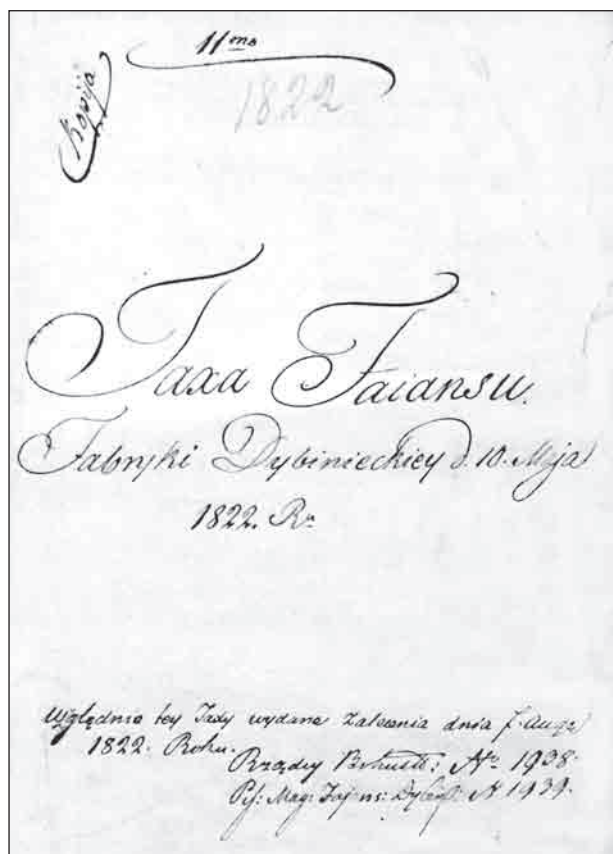 Kopija
11mo
1822
Taxa Faiansu.
Fabryki Dybinieckiey d. 10. Maja
1822. Ru
Względnie tey Taxy wydane Zalecenia dnia
1822. Roku.
Rządcy Bohusł: No 1938.
Pis: Mag: Fajans: N 1939.